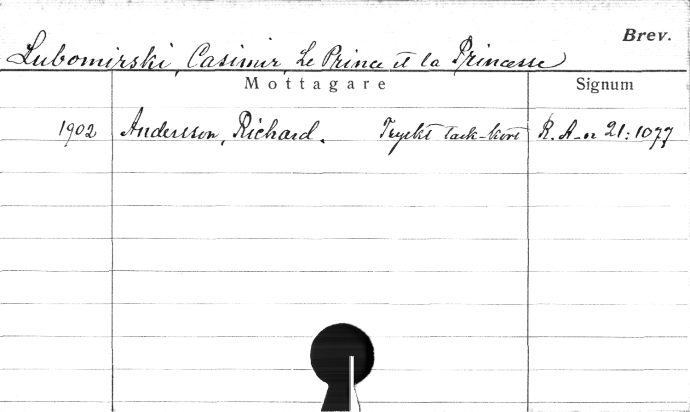 Brev.
Lubomirski, Casimir, Le Prince et la Princesse
Mottagare Signum
1902 Andersson, Richard. Tryckt tack-kort R. A-n 21:1077